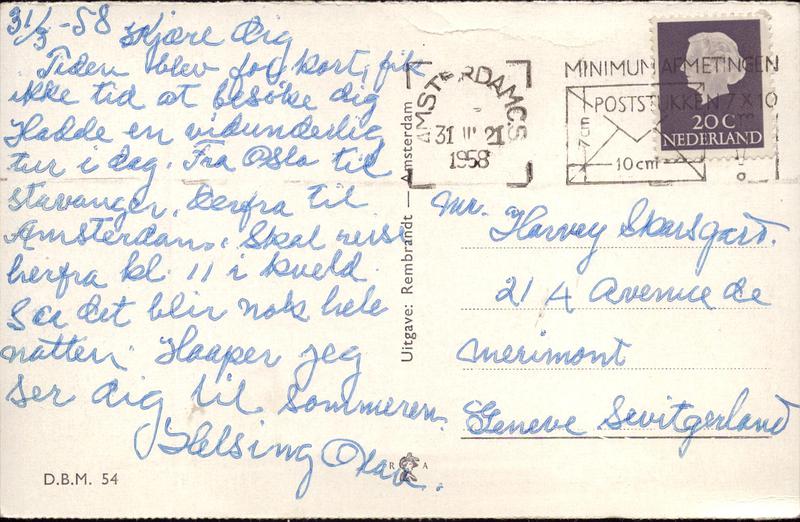 31/3 - 58 Kjære dig
Tiden blev for kort, fik
ikke tid at besöke dig
Hadde en vidunderlig
tur i dag. Fra Oslo til
Stavanger, derfra til
Amsterdam. Skal reise
herfra kl. 11 i kveld
Saa det blir nok hele
natten. Haaper jeg
ser dig til sommeren.
Helsing Olav.
D.B.M. 54
Uitgave: Rembrandt — Amsterdam
R A
AMSTERDAM C.S.
31 III 21
1958
MINIMUM AFMETINGEN
POSTSTUKKEN 7 X 10
10 cm
20 C
NEDERLAND
Mr. Harvey Skarsgard.
21 A Avenue de
Merimont
Geneve Sevitgerland